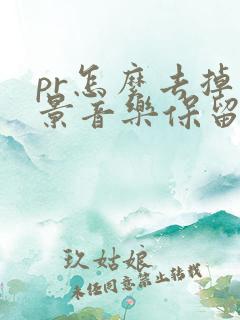 pr怎麼去掉
景音樂保留
玖姑娘
未经同意禁止转载